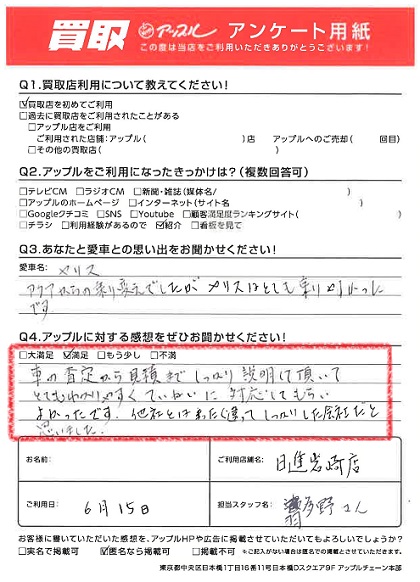 買取 アップル アンケート用紙
この度は当店をご利用いただきありがとうございます!
Q1.買取店利用について教えてください!
☑買取店を初めてご利用
□過去に買取店をご利用されたことがある
□アップル店をご利用
ご利用された店舗:アップル( )店 アップルへのご売却( 回目)
□その他の買取店( )
Q2.アップルをご利用になったきっかけは?(複数回答可)
□テレビCM □ラジオCM □新聞・雑誌(媒体名/ )
□アップルのホームページ □インターネット(サイト名 )
□Googleクチコミ □SNS □Youtube □顧客満足度ランキングサイト( )
□チラシ □利用経験があるので ☑紹介 □看板を見て
Q3.あなたと愛車との思い出をお聞かせください!
愛車名: ヤリス
アクアからの乗り変えでしたが ヤリスはとても乗りやすかった
です
Q4.アップルに対する感想をぜひお聞かせください!
□大満足 ☑満足 □もう少し □不満
車の査定から見積までしっかり説明して頂いて
とてもわかりやすくていねいに対応してもらい
よかったです。他社とはまったく違ってしっかりした会社だと
思いました。
お名前:
ご利用店舗名: 日進岩崎店
ご利用日: 6月15日
担当スタッフ名: 多野さん
お客様に書いていただいた感想を、アップルHPや広告に掲載させていただいてもよろしいでしょうか?
□実名で掲載可 ☑匿名なら掲載可 □掲載不可 ※ご記入がない場合は匿名での掲載とさせていただきます。
東京都中央区日本橋1丁目16番11号日本橋Dスクエア9F アップルチェーン本部